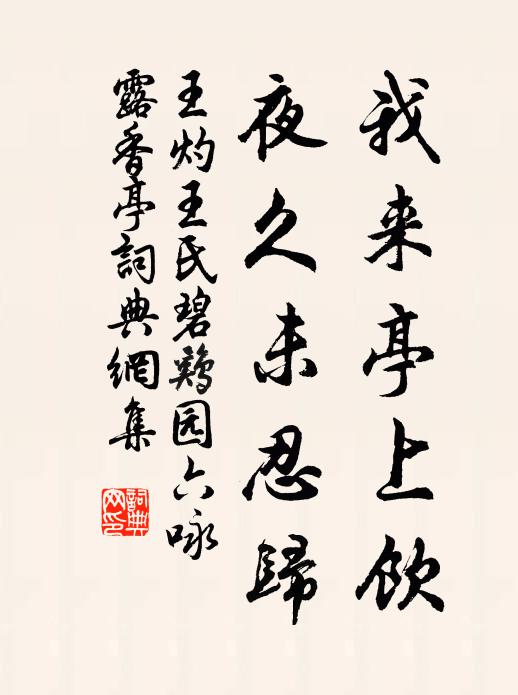 我来亭上饮
夜久未忍歸
王灼王氏碧鷄园六咏
露香亭詞典網集
詞典网印